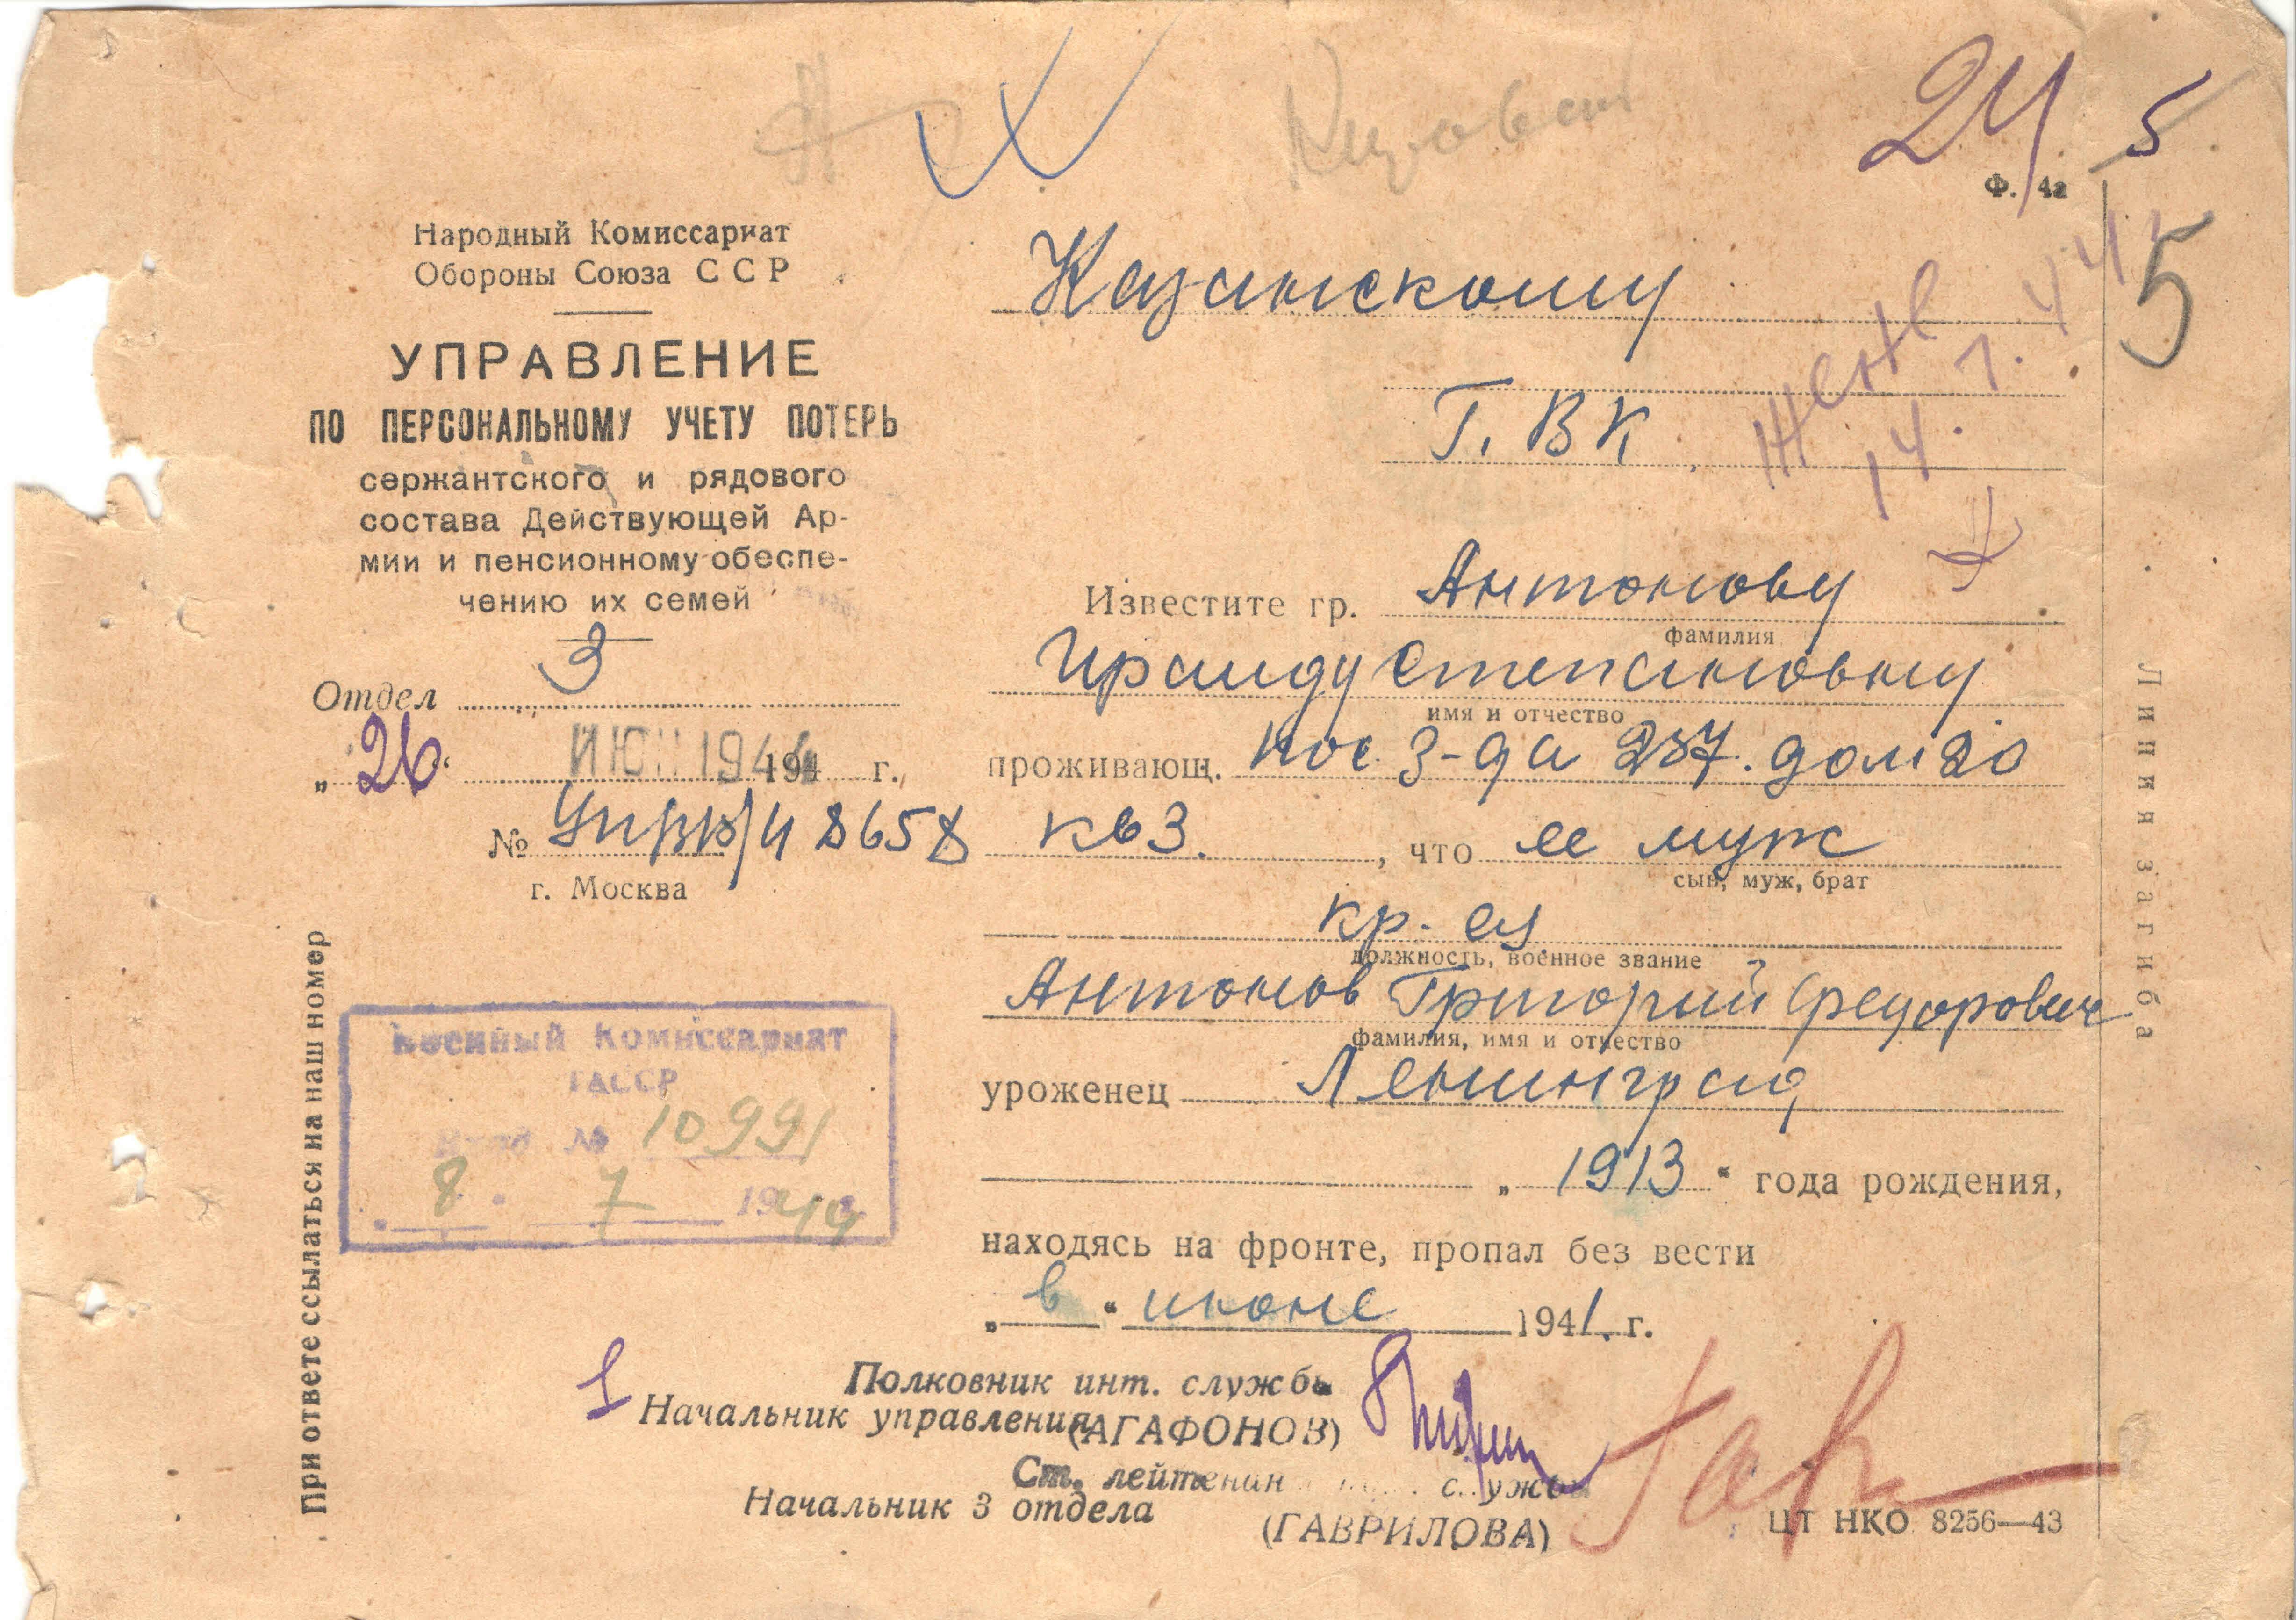 24
5
Ф. 4а
5
Народный Комиссариат
Обороны Союза ССР
УПРАВЛЕНИЕ
ПО ПЕРСОНАЛЬНОМУ УЧЕТУ ПОТЕРЬ
сержантского и рядового
состава Действующей Ар-
мии и пенсионному обеспе-
чению их семей
Отдел 3
„26“ 1944 г.
№ 48658
г. Москва
При ответе ссылаться на наш номер
Военный Комиссариат
ТАССР
Вход. № 10991
8 . 7 1944
Казанскому
Г.В К.
Жене
14. 7. 44
Известите гр. Антонову
фамилия
Ираиду Степановну
имя и отчество
проживающ. пос. З-да 237. дом 20
кв 3. , что ее муж
сын, муж, брат
кр-ец
должность, военное звание
Антонов Григорий Федорович
фамилия, имя и отчество
уроженец Ленинград
„ 1913 “ года рождения,
находясь на фронте, пропал без вести
„ в “ июне 1941. г.
Полковник инт. службы
Начальник управления
(АГАФОНОВ)
Ст. лейтенан служб
Начальник 3 отдела
(ГАВРИЛОВА)
ЦТ НКО 8256—43
Линия загиба